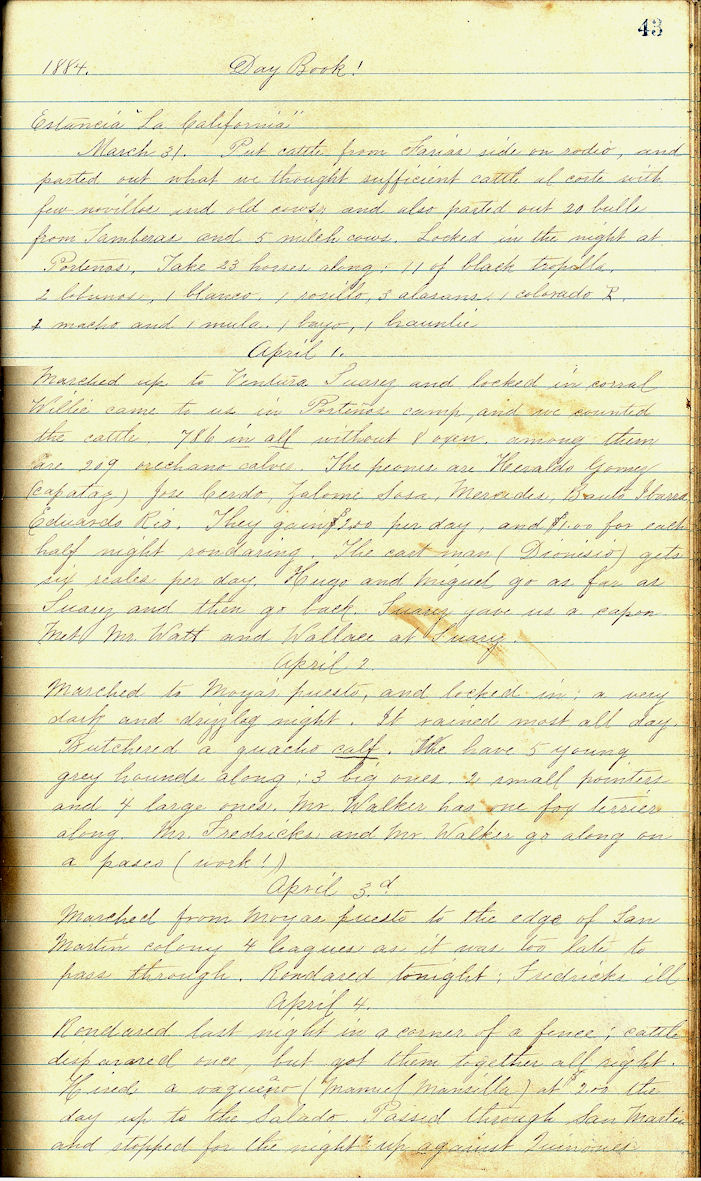 43
1884. Day Book!
Estancia "La California"
March 31. Put cattle from Farias side on rodeo, and
parted out what we thought sufficient cattle al corte with
few novillos and old cows, and also parted out 20 bulls
from Tamberas and 5 milch cows. Locked in the night at
Porteños. Take 23 horses along; 11 of black tropilla,
2 lobunos, 1 blanco, 1 rosillo, 3 alasans, 1 colorado
1 macho and 1 mula. 1 bayo, 1 brauntie
April 1.
Marched up to Ventura Suarez and locked in corral
Willie came to us in Porteños camp, and we counted
the cattle. 786 in all without 8 oxen. among them
are 209 orechano calves. The peones are Heraldo Gomez
(capataz) Jose Cerdo, Jalomi Sosa, Mercedes, Bauto Ibarra,
Eduardo Rio. They gain $2.00 per day, and $1.00 for each
half night rondaring. The cart man (Dionisio) gets
six reales per day. Hugo and Miguel go as far as
Suarez and then go back. Suarez gave us a capon
Met Mr. Watt and Wallace at Suarez.
April 2.
Marched to Moyas puesto, and locked in; a very
dark and drizzly night. It rained most all day.
Butchered a guacho calf. We have 5 young
grey hounds along: 3 big ones. 2 small pointers
and 4 large ones. Mr. Walker has one fox terrier
along. Mr. Fredricks and Mr. Walker go along on
a paseo (work!)
April 3.d
Marched from Moyas puesto to the edge of San
Martin colony 4 leagues as it was too late to
pass through. Rondared tonight; Fredricks ill
April 4.
Rondared last night in a corner of a fence; cattle
disparared once, but got them together all right.
Hired a vaqueano (Manuel Mansilla) at $2.00 the
day up to the Salado. Passed through San Martin
and stopped for the night up against Quinones